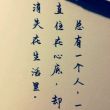 总有一个人，一
直住在心底，却
消失在生活里。